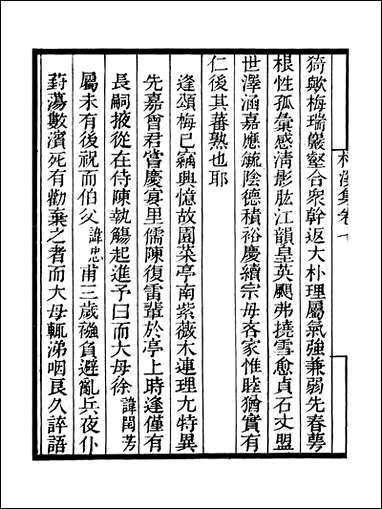 集卷十
猗歟梅瑞巖壑合衆幹返大朴理屬氣強兼弱先春蕚
根性孤彙感清影肱江韻皇英颿弗撓雪愈貞石丈盟
世澤涵嘉應毓陰德積裕慶續宗毋吝家惟睦猶實有
仁後其蕃熟也耶
逢頌梅已竊興憶故園菜亭南紫薇木連理尢特異
先嘉曾君嘗慶宴里儒陳復雷輩於亭上時逢僅有
長嗣掖從在侍陳執觴起進予曰而大母徐諱閏芳
屬未有後祝而伯父諱忠甫三歲襁負避亂兵夜仆
葑蕩數濱死有勸棄之者而大母輒涕咽良久誶語